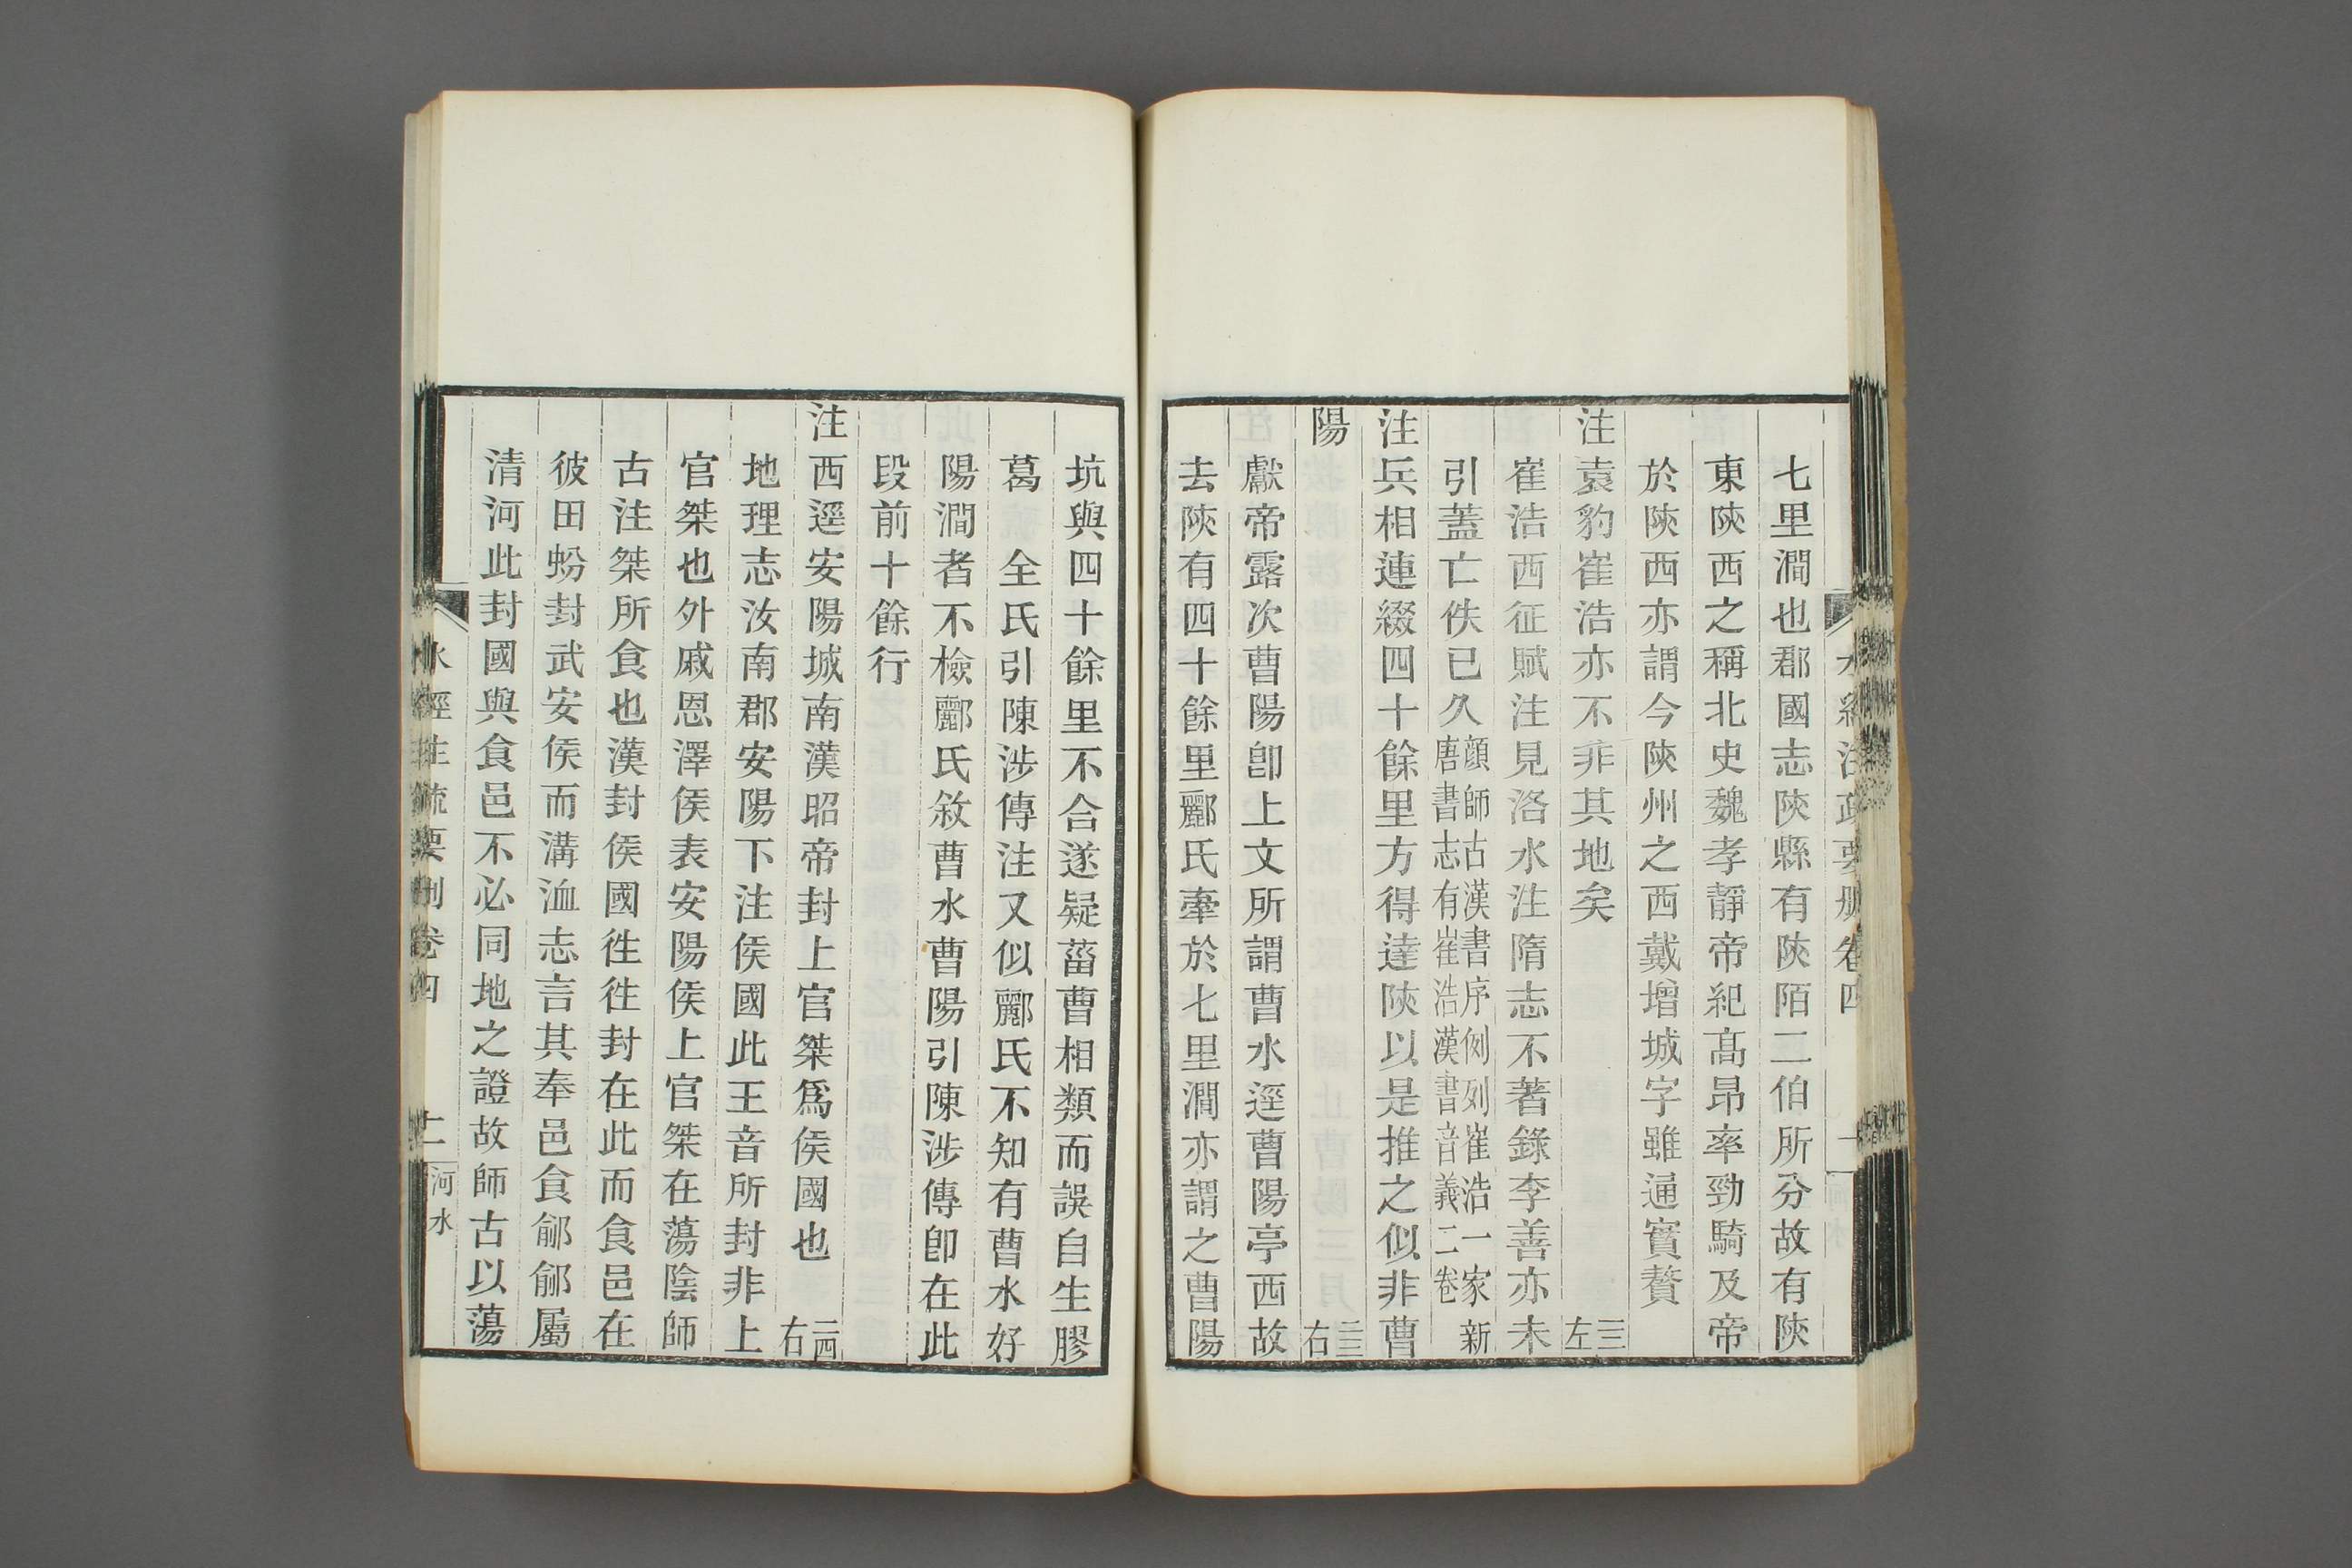 七里澗也郡國志陝縣有陝陌二伯所分故有陝
東陝西之稱北史魏孝靜帝紀高昂率勁騎及帝
於陝西亦謂今陝州之西戴增城字雖通實贅
注袁豹崔浩亦不非其地矣 三三左
崔浩西征賦注見洛水注隋志不著錄李善亦未
引蓋亡佚已久顔師古漢書序例列崔浩一家新唐書志有崔浩漢書音義二卷
注兵相連綴四十餘里方得達陝以是推之似非曹
陽 二三右
獻帝露次曹陽卽上文所謂曹水逕曹陽亭西故
去陝有四十餘里酈氏牽於七里澗亦謂之曹陽
坑與四十餘里不合遂疑菑曹相類而誤自生膠
葛 全氏引陳涉傳注又似酈氏不知有曹水好
陽澗者不檢酈氏敘曹水曹陽引陳涉傳卽在此
段前十餘行
注西逕安陽城南漢昭帝封上官桀爲侯國也 二四右
地理志汝南郡安陽下注侯國此王音所封非上
官桀也外戚恩澤侯表安陽侯上官桀在蕩陰師
古注桀所食也漢封侯國徃徃封在此而食邑在
彼田蚡封武安侯而溝洫志言其奉邑食鄃鄃屬
清河此封國與食邑不必同地之證故師古以蕩
水經注疏要刪卷四 二 河水